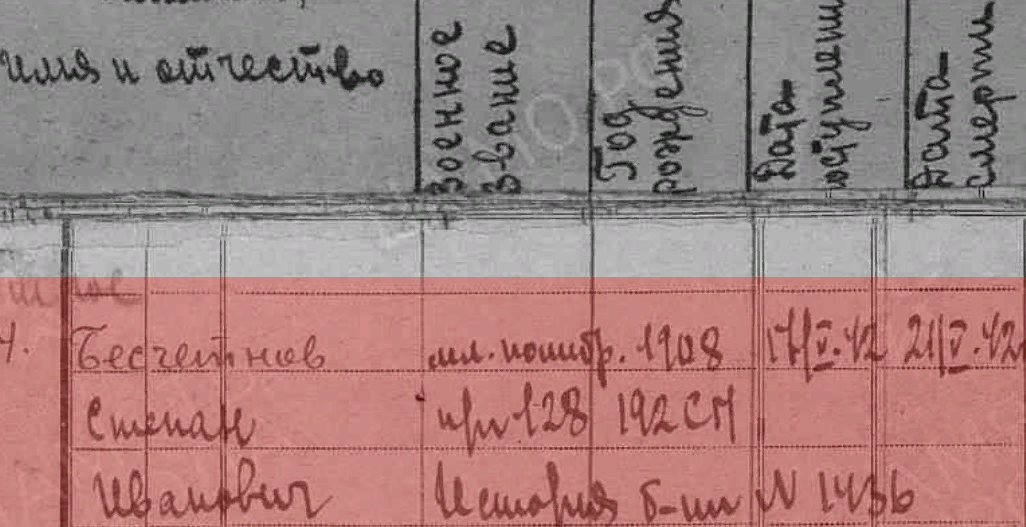 имя и отчество
Военное звание
Год рождения
Дата поступлени
Дата смерти
4. Бесчетнов мл. комвзв. 1908 17/V.42 21/V.42
Степан при 128 192 СП
Иванович История б-ни N 1436